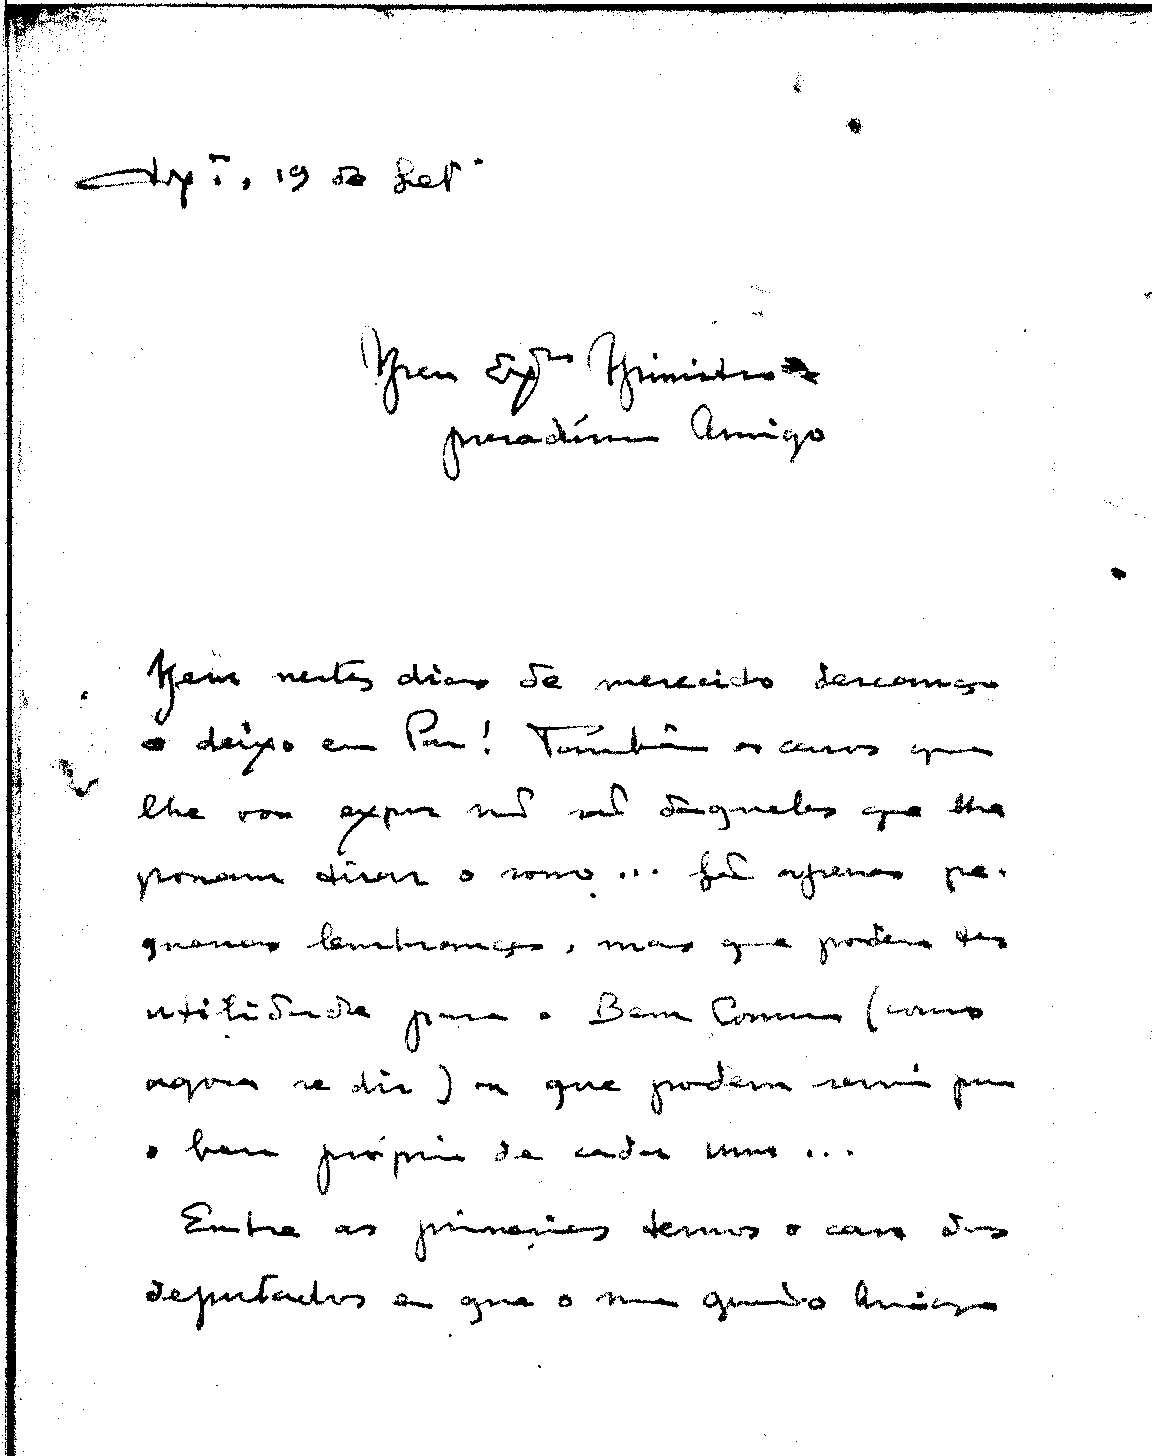 19 de Set.
Meu Exmo Ministro e
presadíssimo Amigo
Nem nestes dias de merecido descanço
o deixo em Paz! Também os casos que
lhe vou expor não são daqueles que lhe
possam tirar o sono... São apenas pe-
quenas lembranças, mas que podem ter
utilidade para o Bem Comum (como
agora se diz) ou que podem servir para
o bem próprio de cada um...
Entre as primeiras temos o caso dos
deputados em que o meu querido Amigo